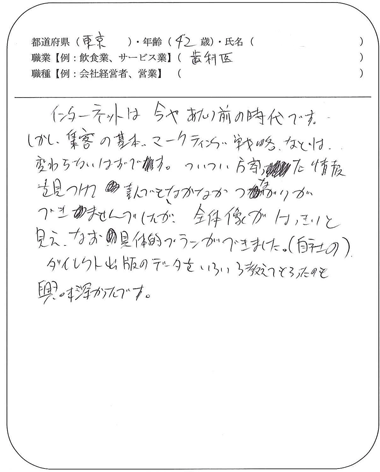 都道府県（東京　）・年齢（42歳）・氏名（　）
職業【例：飲食業、サービス業】（歯科医　）
職種【例：会社経営者、営業】（　）
インターネットは今やあたり前の時代です。
しかし、集客の基本、マーケティング、戦略、などは、
変わらないはずです。ついつい方寄った情報
を見つけ 読んでもなかなかつながりが
できませんでしたが、全体像がはっきりと
見え、なお具体的プランができました。（自社の）
ダイレクト出版のデータをいろいろ教えてもらったのも
興味深かったです。